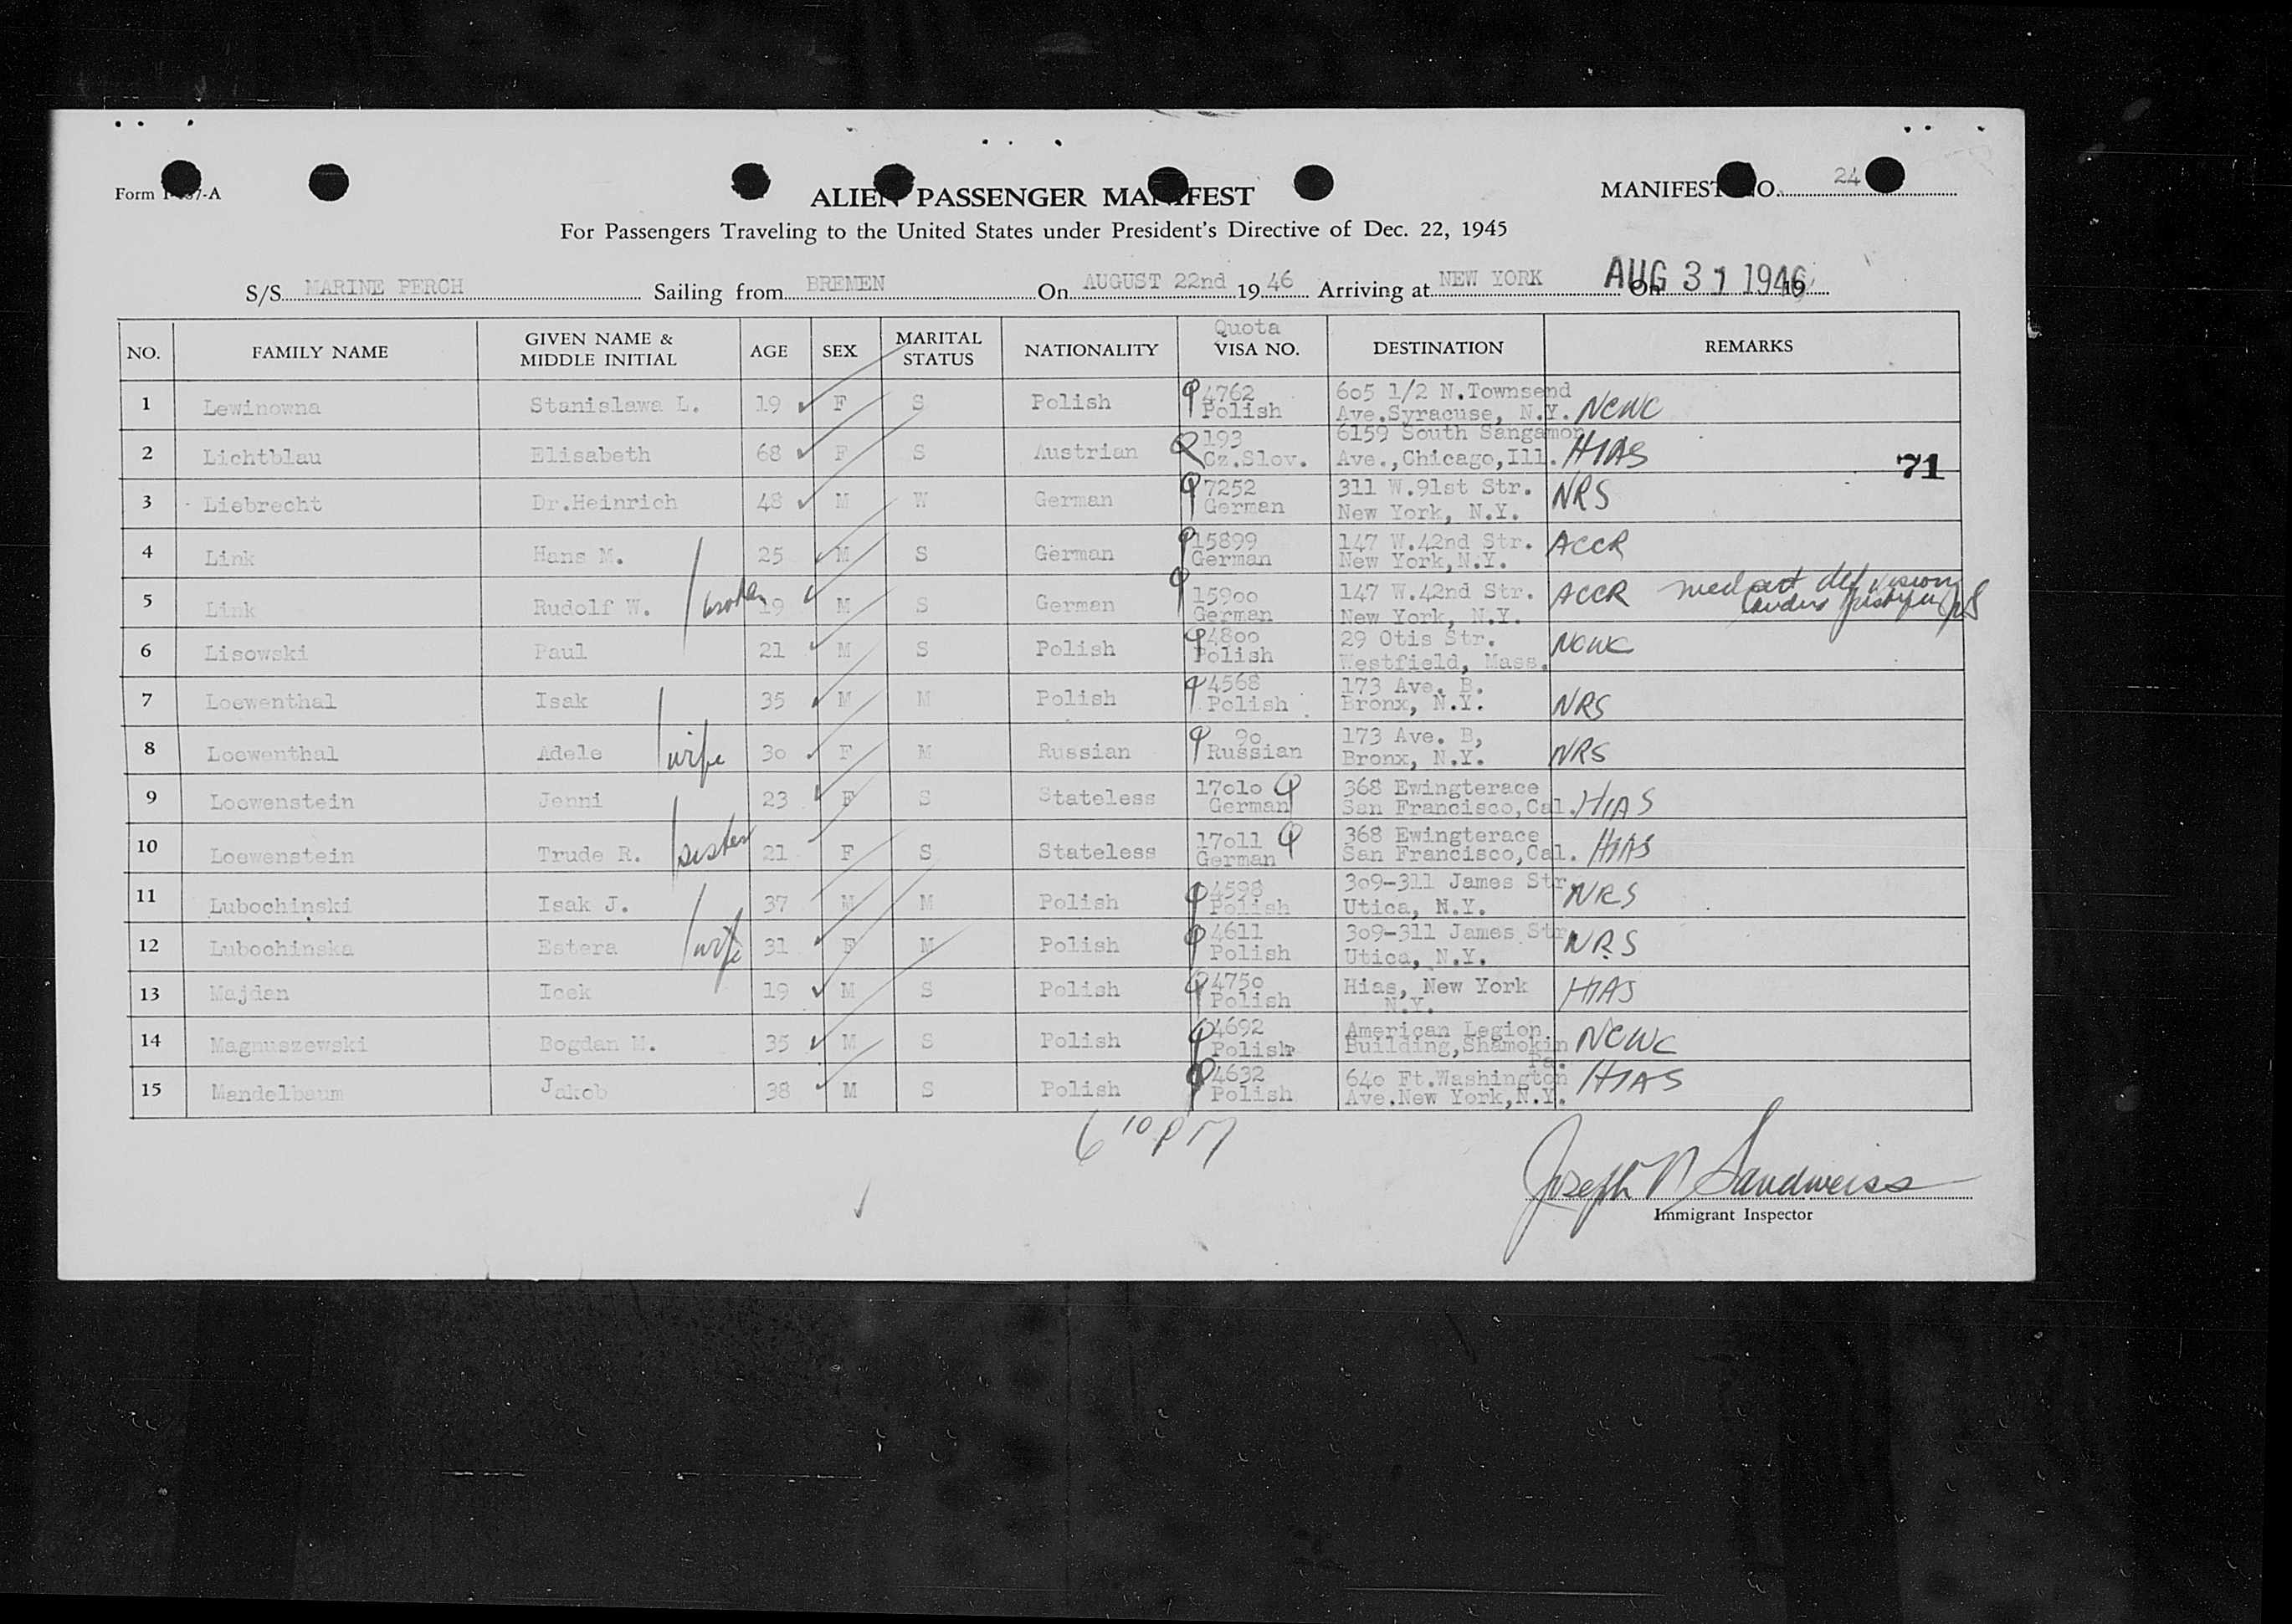 Form I-437-A
ALIEN PASSENGER MANIFEST
MANIFEST NO. 24
For Passengers Traveling to the United States under President's Directive of Dec. 22, 1945
S/S MARINE PERCH Sailing from BREMEN On AUGUST 22nd 19 46 Arriving at NEW YORK On AUG 31 1946 19
NO. FAMILY NAME GIVEN NAME & MIDDLE INITIAL AGE SEX MARITAL STATUS NATIONALITY Quota VISA NO. DESTINATION REMARKS
1 Lewinowna Stanislawa L. 19 F S Polish 4762 Polish 605 1/2 N.Townsend Ave.Syracuse, N.Y. NCWC
2 Lichtblau Elisabeth 68 F S Austrian 193 Cz.Slov. 6159 South Sangamon Ave.,Chicago,Ill. HIAS
71
3 Liebrecht Dr.Heinrich 48 M W German 7252 German 311 W.91st Str. New York, N.Y. NRS
4 Link Hans M. 25 M S German 15899 German 147 W.42nd Str. New York,N.Y. ACCR
5 Link Rudolf W. brother 19 M S German 15900 German 147 W.42nd Str. New York, N.Y. ACCR med cert def vision
6 Lisowski Paul 21 M S Polish 4800 Polish 29 Otis Str. Westfield, Mass. NCWC
7 Loewenthal Isak 35 M M Polish 4568 Polish 173 Ave. B. Bronx, N.Y. NRS
8 Loewenthal Adele wife 30 F M Russian 90 Russian 173 Ave. B, Bronx, N.Y. NRS
9 Loewenstein Jenni 23 F S Stateless 17010 German 368 Ewingterace San Francisco,Cal. HIAS
10 Loewenstein Trude R. sister 21 F S Stateless 17011 German 368 Ewingterace San Francisco,Cal. HIAS
11 Lubochinski Isak J. 37 M M Polish 4598 Polish 309-311 James Str. Utica, N.Y. NRS
12 Lubochinska Estera wife 31 F M Polish 4611 Polish 309-311 James Str. Utica, N.Y. NRS
13 Majdan Icek 19 M S Polish 4750 Polish Hias, New York N.Y. HIAS
14 Magnuszewski Bogdan M. 35 M S Polish 4692 Polish American Legion Building,Shamokin Pa. NCWC
15 Mandelbaum Jakob 38 M S Polish 4632 Polish 640 Ft.Washington Ave.New York,N.Y. HIAS
6 10 PM
Joseph N Sandweiss
Immigrant Inspector